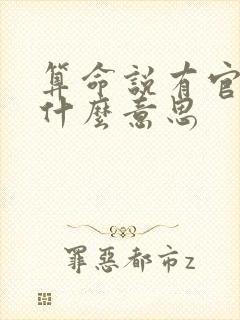 算命說有官
什麼意思
罪惡都市z